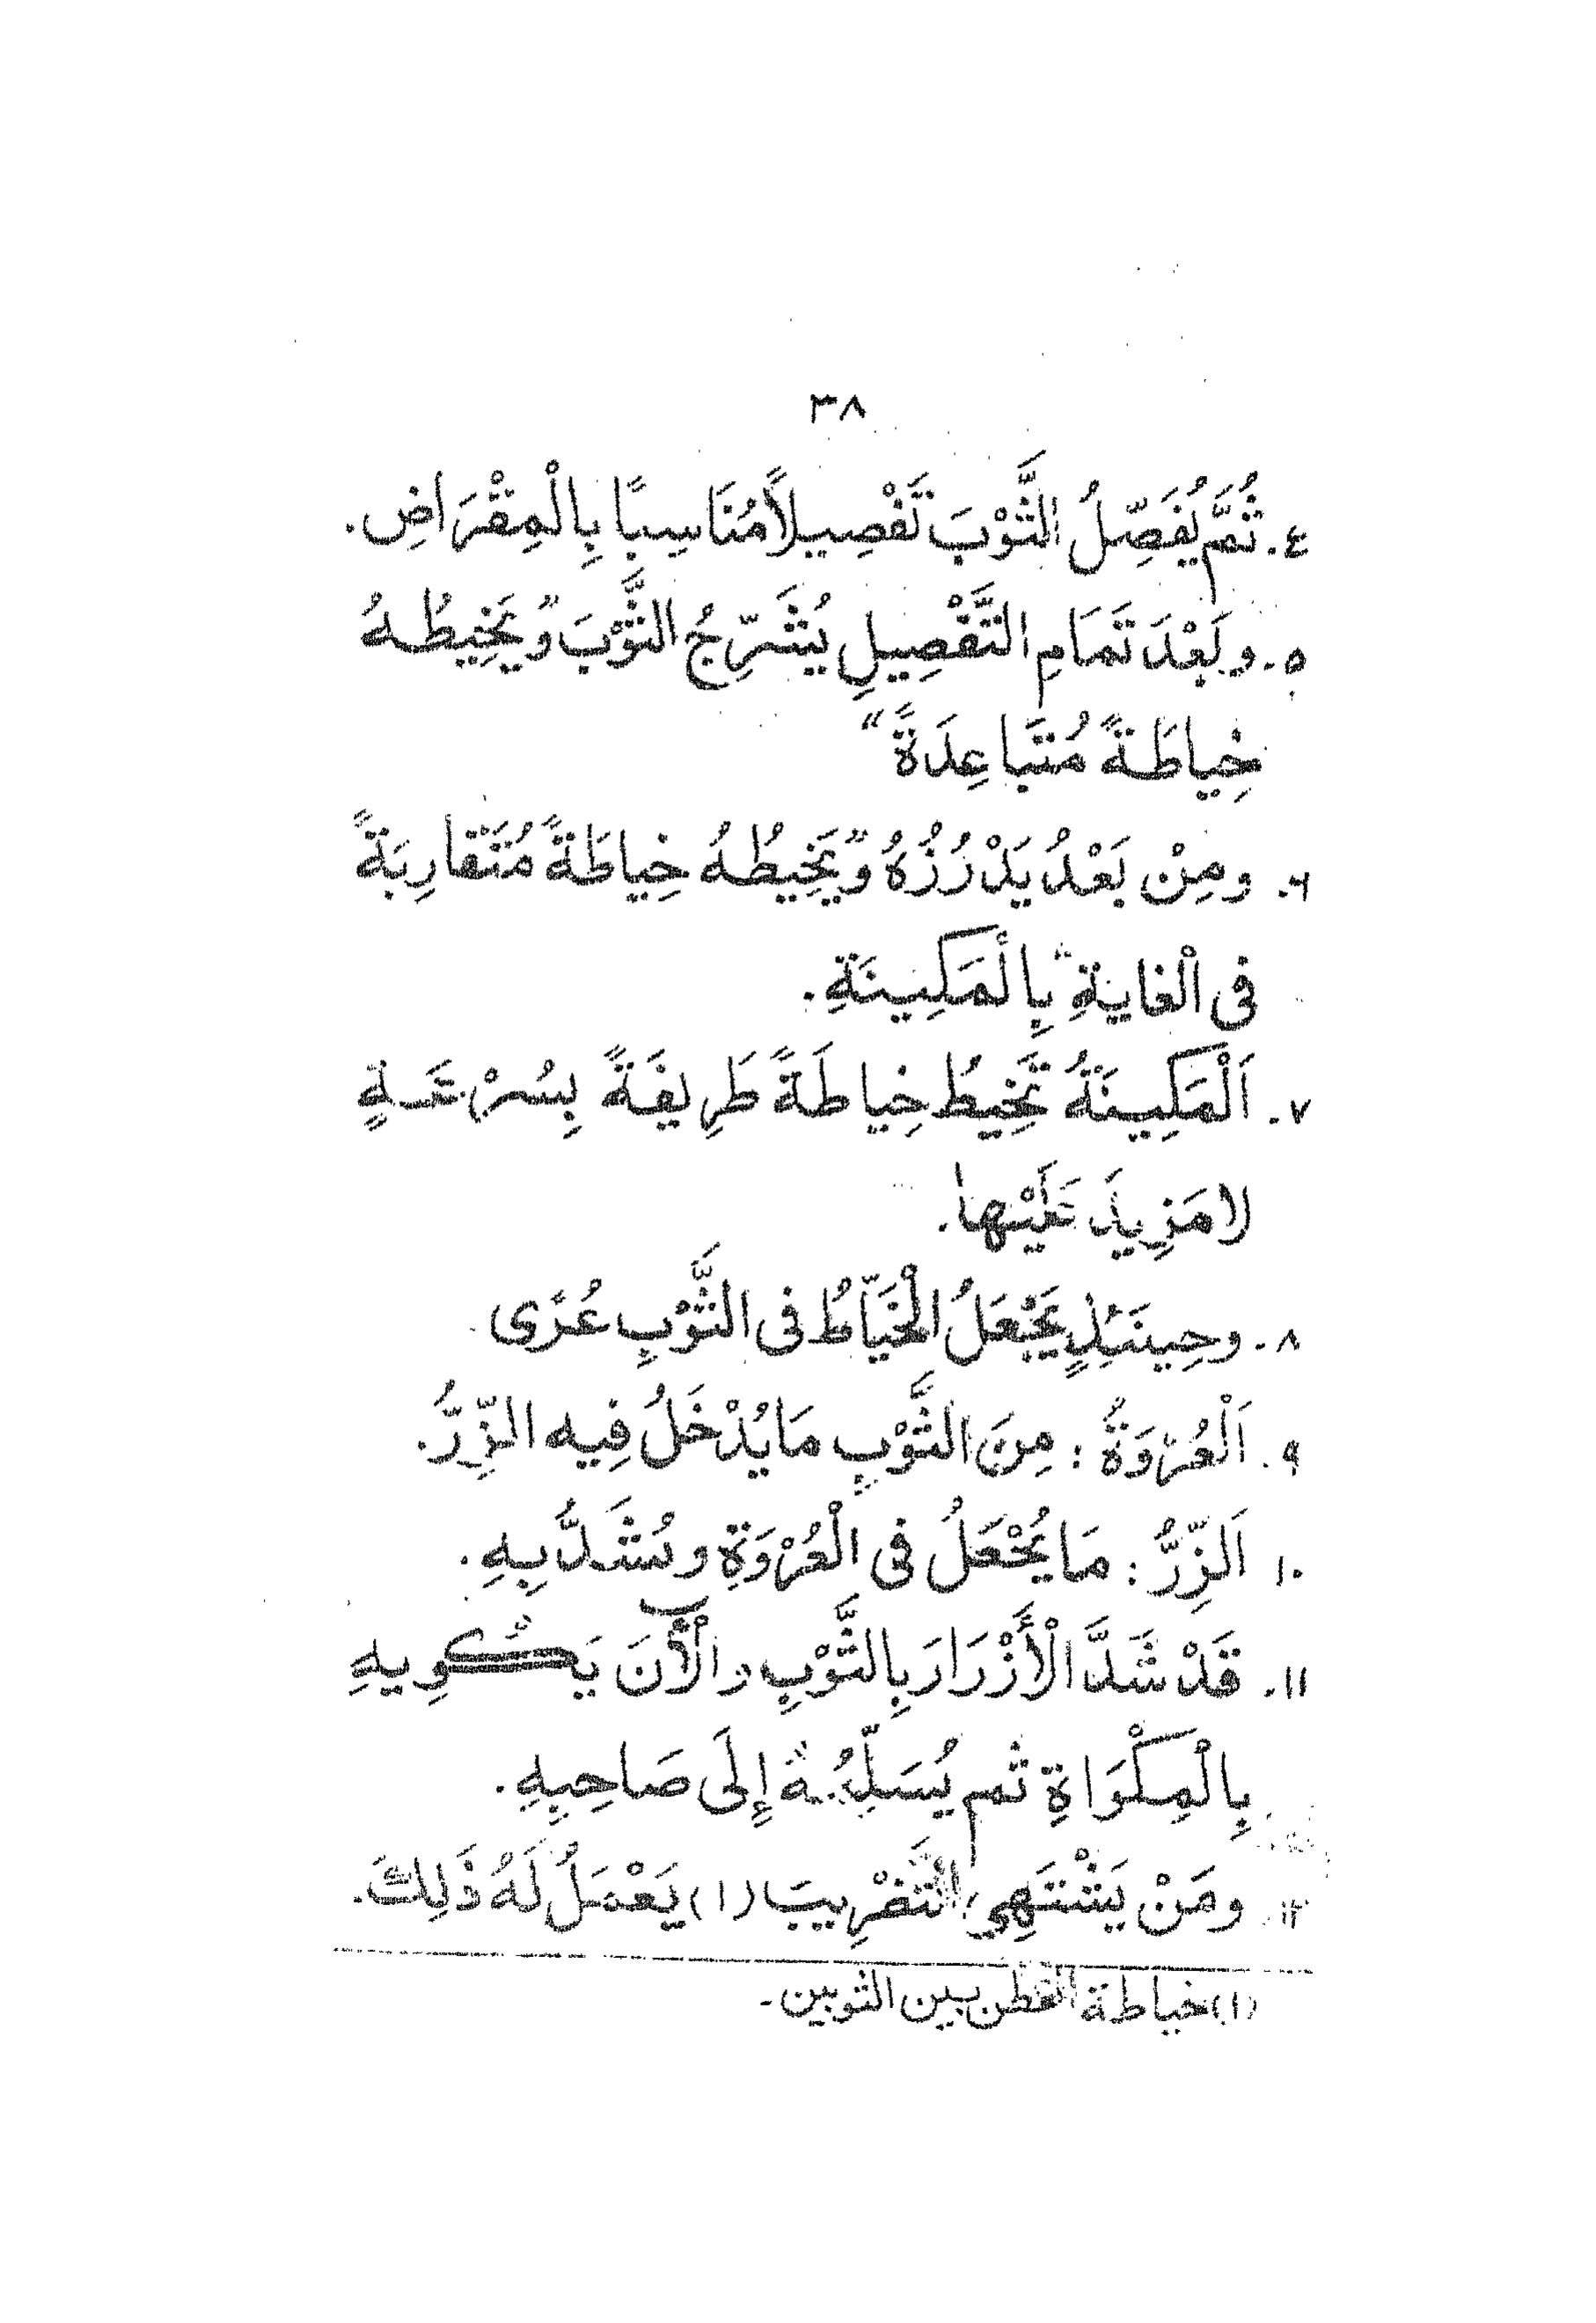 ٣٨
٤. ثُمَّ يُفَصِّلُ الثَّوْبَ تَفْصِيلاً مُنَاسِبًا بِالْمِقْرَاضِ.
٥. وبَعْدَ تَمَامِ التَّفْصِيلِ يُشَرِّجُ الثَّوْبَ "ويَخِيطُهُ
خِياطَةً مُتَبَاعِدَةً"
٦. ومِنْ بَعْدُ يَدْرُزُهُ "ويَخِيطُهُ خِياطَةً مُتَقارِبَةً
فى الْغايةِ" بِالْمَكِينَةِ.
٧. اَلْمَكِينَةُ تَخِيطُ خِياطَةً ظَرِيفَةً بِسُرْعَةٍ
لامَزِيدَ عَلَيْها.
٨. وحِينَئِذٍ يَجْعَلُ الْخَيَّاطُ فى الثَّوْبِ عُرًى
٩. اَلْعُرْوَةُ : مِنَ الثَّوْبِ مَا يُدْخَلُ فِيه الزِّرُّ.
١٠ اَلزِّرُّ : مَا يُجْعَلُ فى الْعُرْوَةِ ويُشَدُّ بِهِ.
١١. قَدْ شَدَّ الْأَزْرَارَ بِالثَّوْبِ والْأنَ يَكْوِيهِ
بِالْمِكْوَاةِ ثم يُسَلِّمُهُ إِلَى صَاحِبِهِ.
١٢. ومَنْ يَشْتَهِى التَّضْرِيبَ (١) يَعْمَلُ لَهُ ذَلِكَ.
(١) خياطة القطن بين الثوبين.